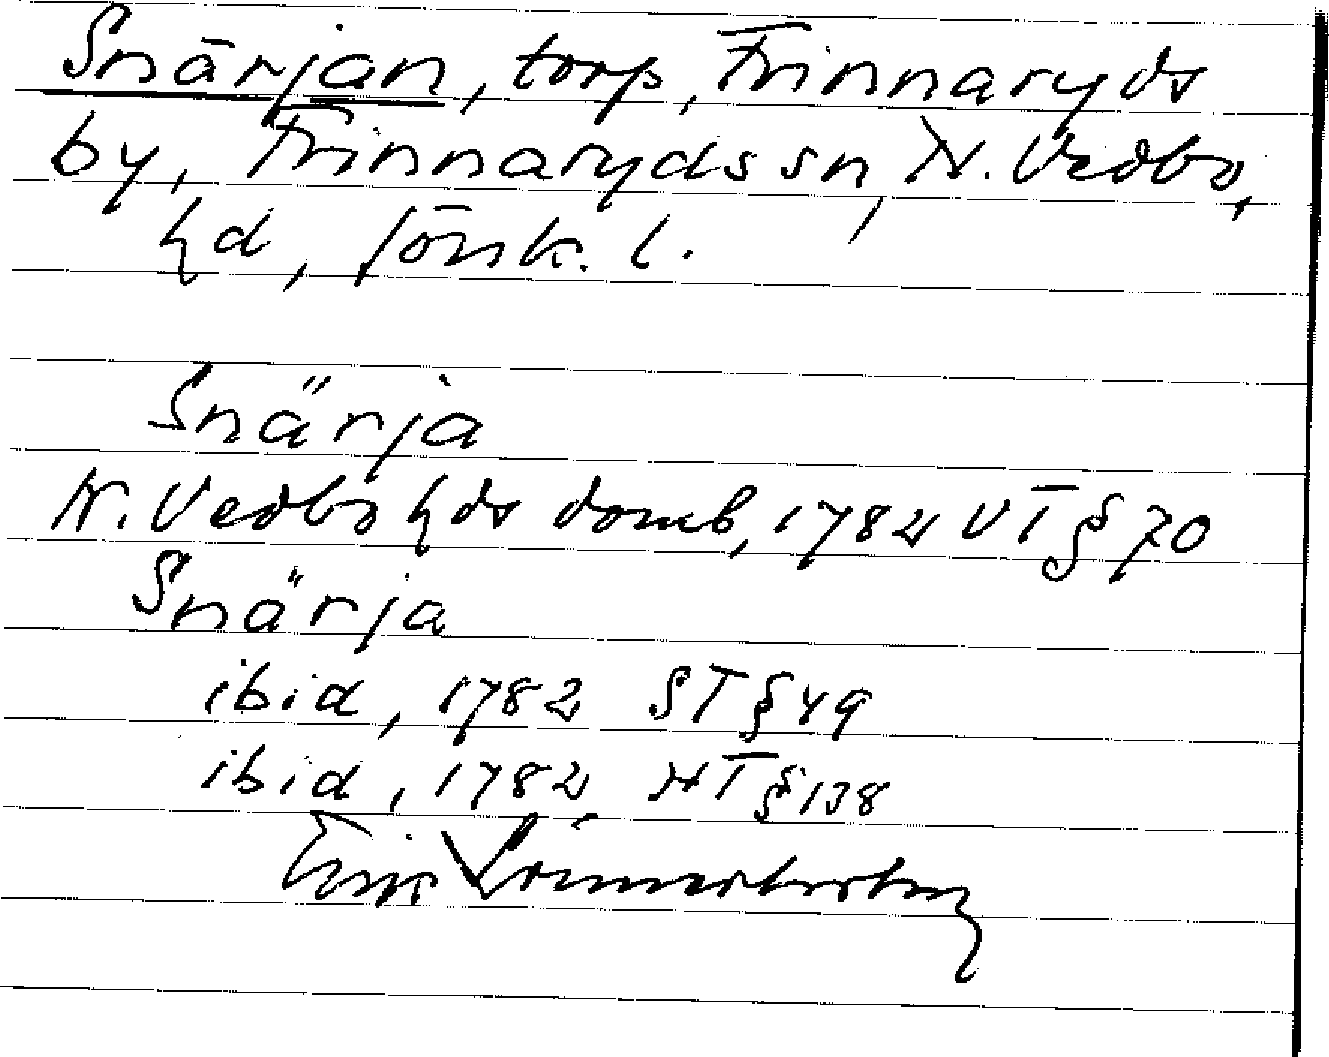 Snärjan, torp, Frinnaryds
by, Frinnaryds sn, N. Vedbo,
hd, Jönk. l.
Snärja
N. Vedbo hds domb, 1782 VT § 70
Snärja
ibid, 1782 ST § 49
ibid, 1782 HT § 138